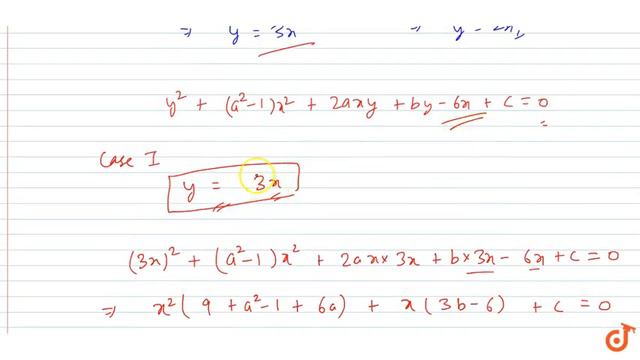 ⇒ y = 3x ⇒ y = 2x,
y² + (a²-1)x² + 2axy + by - 6x + c = 0
Case I
y = 3x
(3x)² + (a²-1)x² + 2ax×3x + b×3x - 6x + c = 0
⇒ x²(9 + a²-1 + 6a) + x(3b-6) + c = 0
d